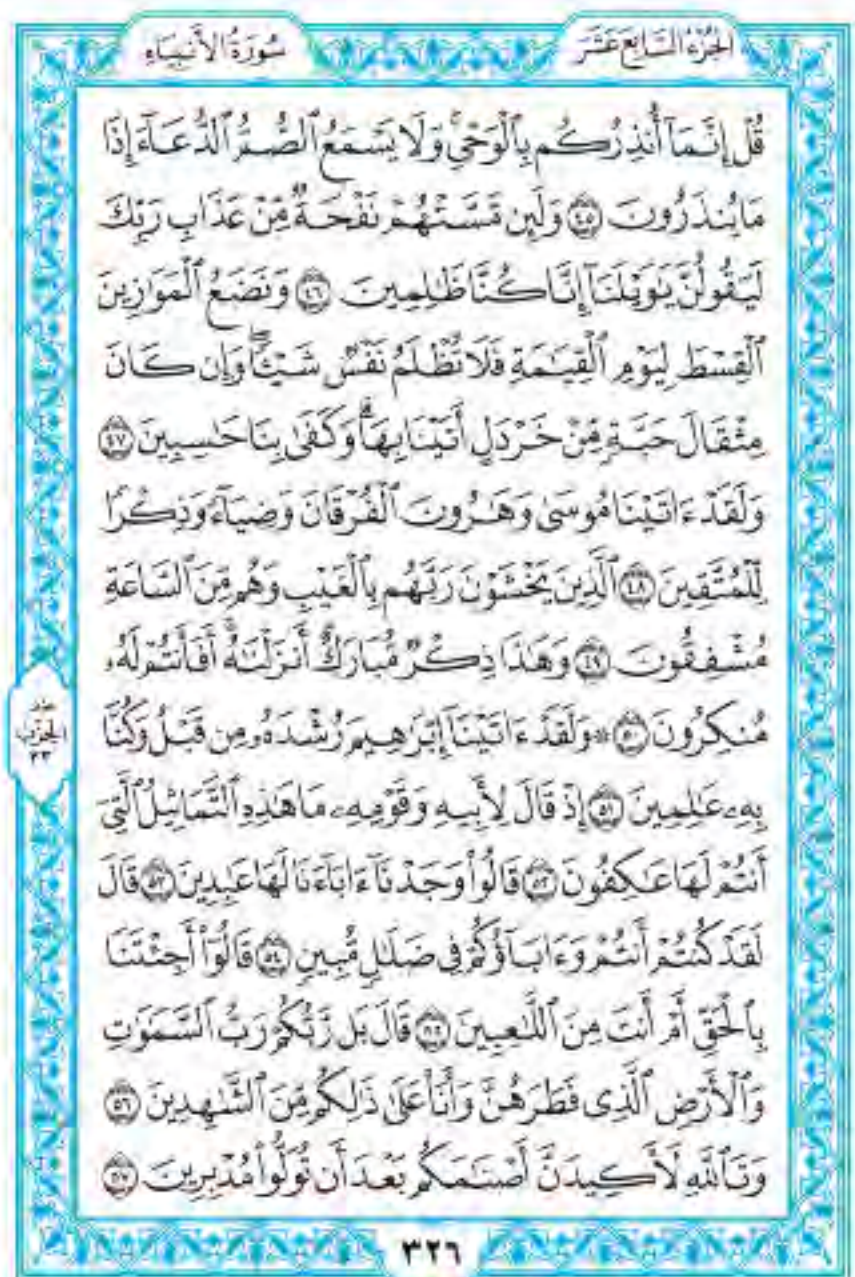 الجزء السابع عشر
سورة الأنبياء
قُلْ إِنَّمَآ أُنذِرُكُم بِٱلْوَحْىِ ۚ وَلَا يَسْمَعُ ٱلصُّمُّ ٱلدُّعَآءَ إِذَا
مَا يُنذَرُونَ ٤٥ وَلَئِن مَّسَّتْهُمْ نَفْحَةٌ مِّنْ عَذَابِ رَبِّكَ
لَيَقُولُنَّ يَٰوَيْلَنَآ إِنَّا كُنَّا ظَٰلِمِينَ ٤٦ وَنَضَعُ ٱلْمَوَٰزِينَ
ٱلْقِسْطَ لِيَوْمِ ٱلْقِيَٰمَةِ فَلَا تُظْلَمُ نَفْسٌ شَيْـًٔا ۖ وَإِن كَانَ
مِثْقَالَ حَبَّةٍ مِّنْ خَرْدَلٍ أَتَيْنَا بِهَا ۗ وَكَفَىٰ بِنَا حَٰسِبِينَ ٤٧
وَلَقَدْ ءَاتَيْنَا مُوسَىٰ وَهَٰرُونَ ٱلْفُرْقَانَ وَضِيَآءً وَذِكْرًا
لِّلْمُتَّقِينَ ٤٨ ٱلَّذِينَ يَخْشَوْنَ رَبَّهُم بِٱلْغَيْبِ وَهُم مِّنَ ٱلسَّاعَةِ
مُشْفِقُونَ ٤٩ وَهَٰذَا ذِكْرٌ مُّبَارَكٌ أَنزَلْنَٰهُ ۚ أَفَأَنتُمْ لَهُۥ
مُنكِرُونَ ٥٠ ۞ وَلَقَدْ ءَاتَيْنَآ إِبْرَٰهِيمَ رُشْدَهُۥ مِن قَبْلُ وَكُنَّا
بِهِۦ عَٰلِمِينَ ٥١ إِذْ قَالَ لِأَبِيهِ وَقَوْمِهِۦ مَا هَٰذِهِ ٱلتَّمَاثِيلُ ٱلَّتِىٓ
أَنتُمْ لَهَا عَٰكِفُونَ ٥٢ قَالُوا۟ وَجَدْنَآ ءَابَآءَنَا لَهَا عَٰبِدِينَ ٥٣ قَالَ
لَقَدْ كُنتُمْ أَنتُمْ وَءَابَآؤُكُمْ فِى ضَلَٰلٍ مُّبِينٍ ٥٤ قَالُوٓا۟ أَجِئْتَنَا
بِٱلْحَقِّ أَمْ أَنتَ مِنَ ٱللَّٰعِبِينَ ٥٥ قَالَ بَل رَّبُّكُمْ رَبُّ ٱلسَّمَٰوَٰتِ
وَٱلْأَرْضِ ٱلَّذِى فَطَرَهُنَّ وَأَنَا۠ عَلَىٰ ذَٰلِكُم مِّنَ ٱلشَّٰهِدِينَ ٥٦
وَتَٱللَّهِ لَأَكِيدَنَّ أَصْنَٰمَكُم بَعْدَ أَن تُوَلُّوا۟ مُدْبِرِينَ ٥٧
الحزب
٣٣
٣٢٦